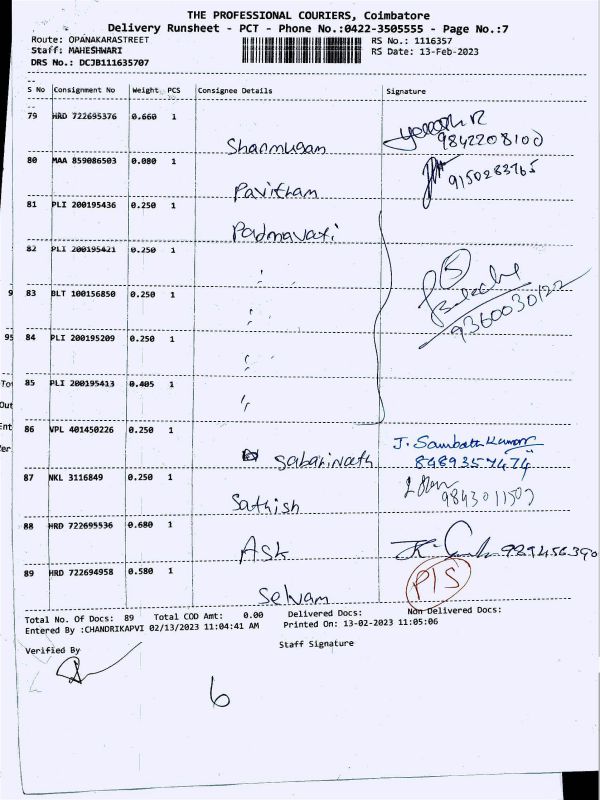 THE PROFESSIONAL COURIERS, Coimbatore
Delivery Runsheet - PCT - Phone No.:0422-3505555 - Page No.:7
Route: OPANAKARASTREET RS No.: 1116357
Staff: MAHESHWARI RS Date: 13-Feb-2023
DRS No.: DCJB111635707
S No Consignment No Weight PCS Consignee Details Signature
79 HRD 722695376 0.660 1
Shanmugam 9842208100
80 MAA 859086503 0.080 1
Pavitham 9150283765
81 PLI 200195436 0.250 1
Padmavati
82 PLI 200195421 0.250 1
5
83 BLT 100156850 0.250 1
9360030122
84 PLI 200195209 0.250 1
85 PLI 200195413 0.405 1
86 VPL 401450226 0.250 1
Sabarinath J. Sambath Kumar
8489357474
87 NKL 3116849 0.250 1
Sathish 9843011507
88 HRD 722695536 0.680 1
Ask
89 HRD 722694958 0.580 1
Selvam PTS
Total No. Of Docs: 89 Total COD Amt: 0.00 Delivered Docs: Non Delivered Docs:
Entered By :CHANDRIKAPVI 02/13/2023 11:04:41 AM Printed On: 13-02-2023 11:05:06
Verified By Staff Signature
6